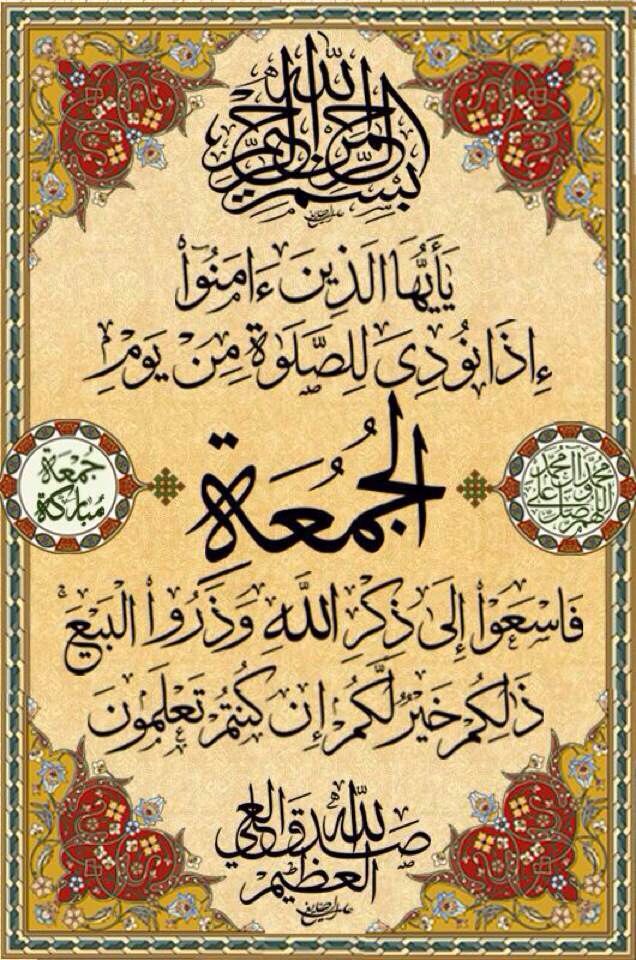 بسم الله الرحمن الرحيم
يَٰٓأَيُّهَا الَّذِينَ ءَامَنُوٓا۟
إِذَا نُودِىَ لِلصَّلَوٰةِ مِن يَوْمِ
الْجُمُعَةِ
فَاسْعَوْا۟ إِلَىٰ ذِكْرِ اللَّهِ وَذَرُوا۟ الْبَيْعَ ۚ
ذَٰلِكُمْ خَيْرٌ لَّكُمْ إِن كُنتُمْ تَعْلَمُونَ
صدق الله العلي
العظيم
جمعة
مباركة
اللهم صل على
محمد وآل محمد